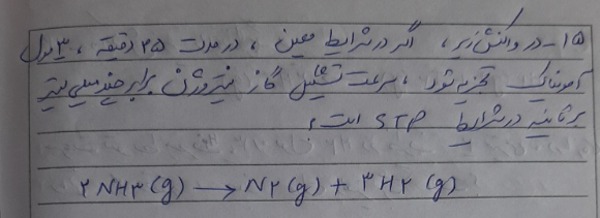 ۱۵- در واکنش زیر، اگر در شرایط معین، در مدت ۲۵ دقیقه، ۳ مول
آمونیاک تجزیه شود، سرعت تشکیل گاز نیتروژن برابر چند میلی لیتر
بر ثانیه در شرایط STP است؟
۲NH۳(g) → N۲(g) + ۳H۲(g)